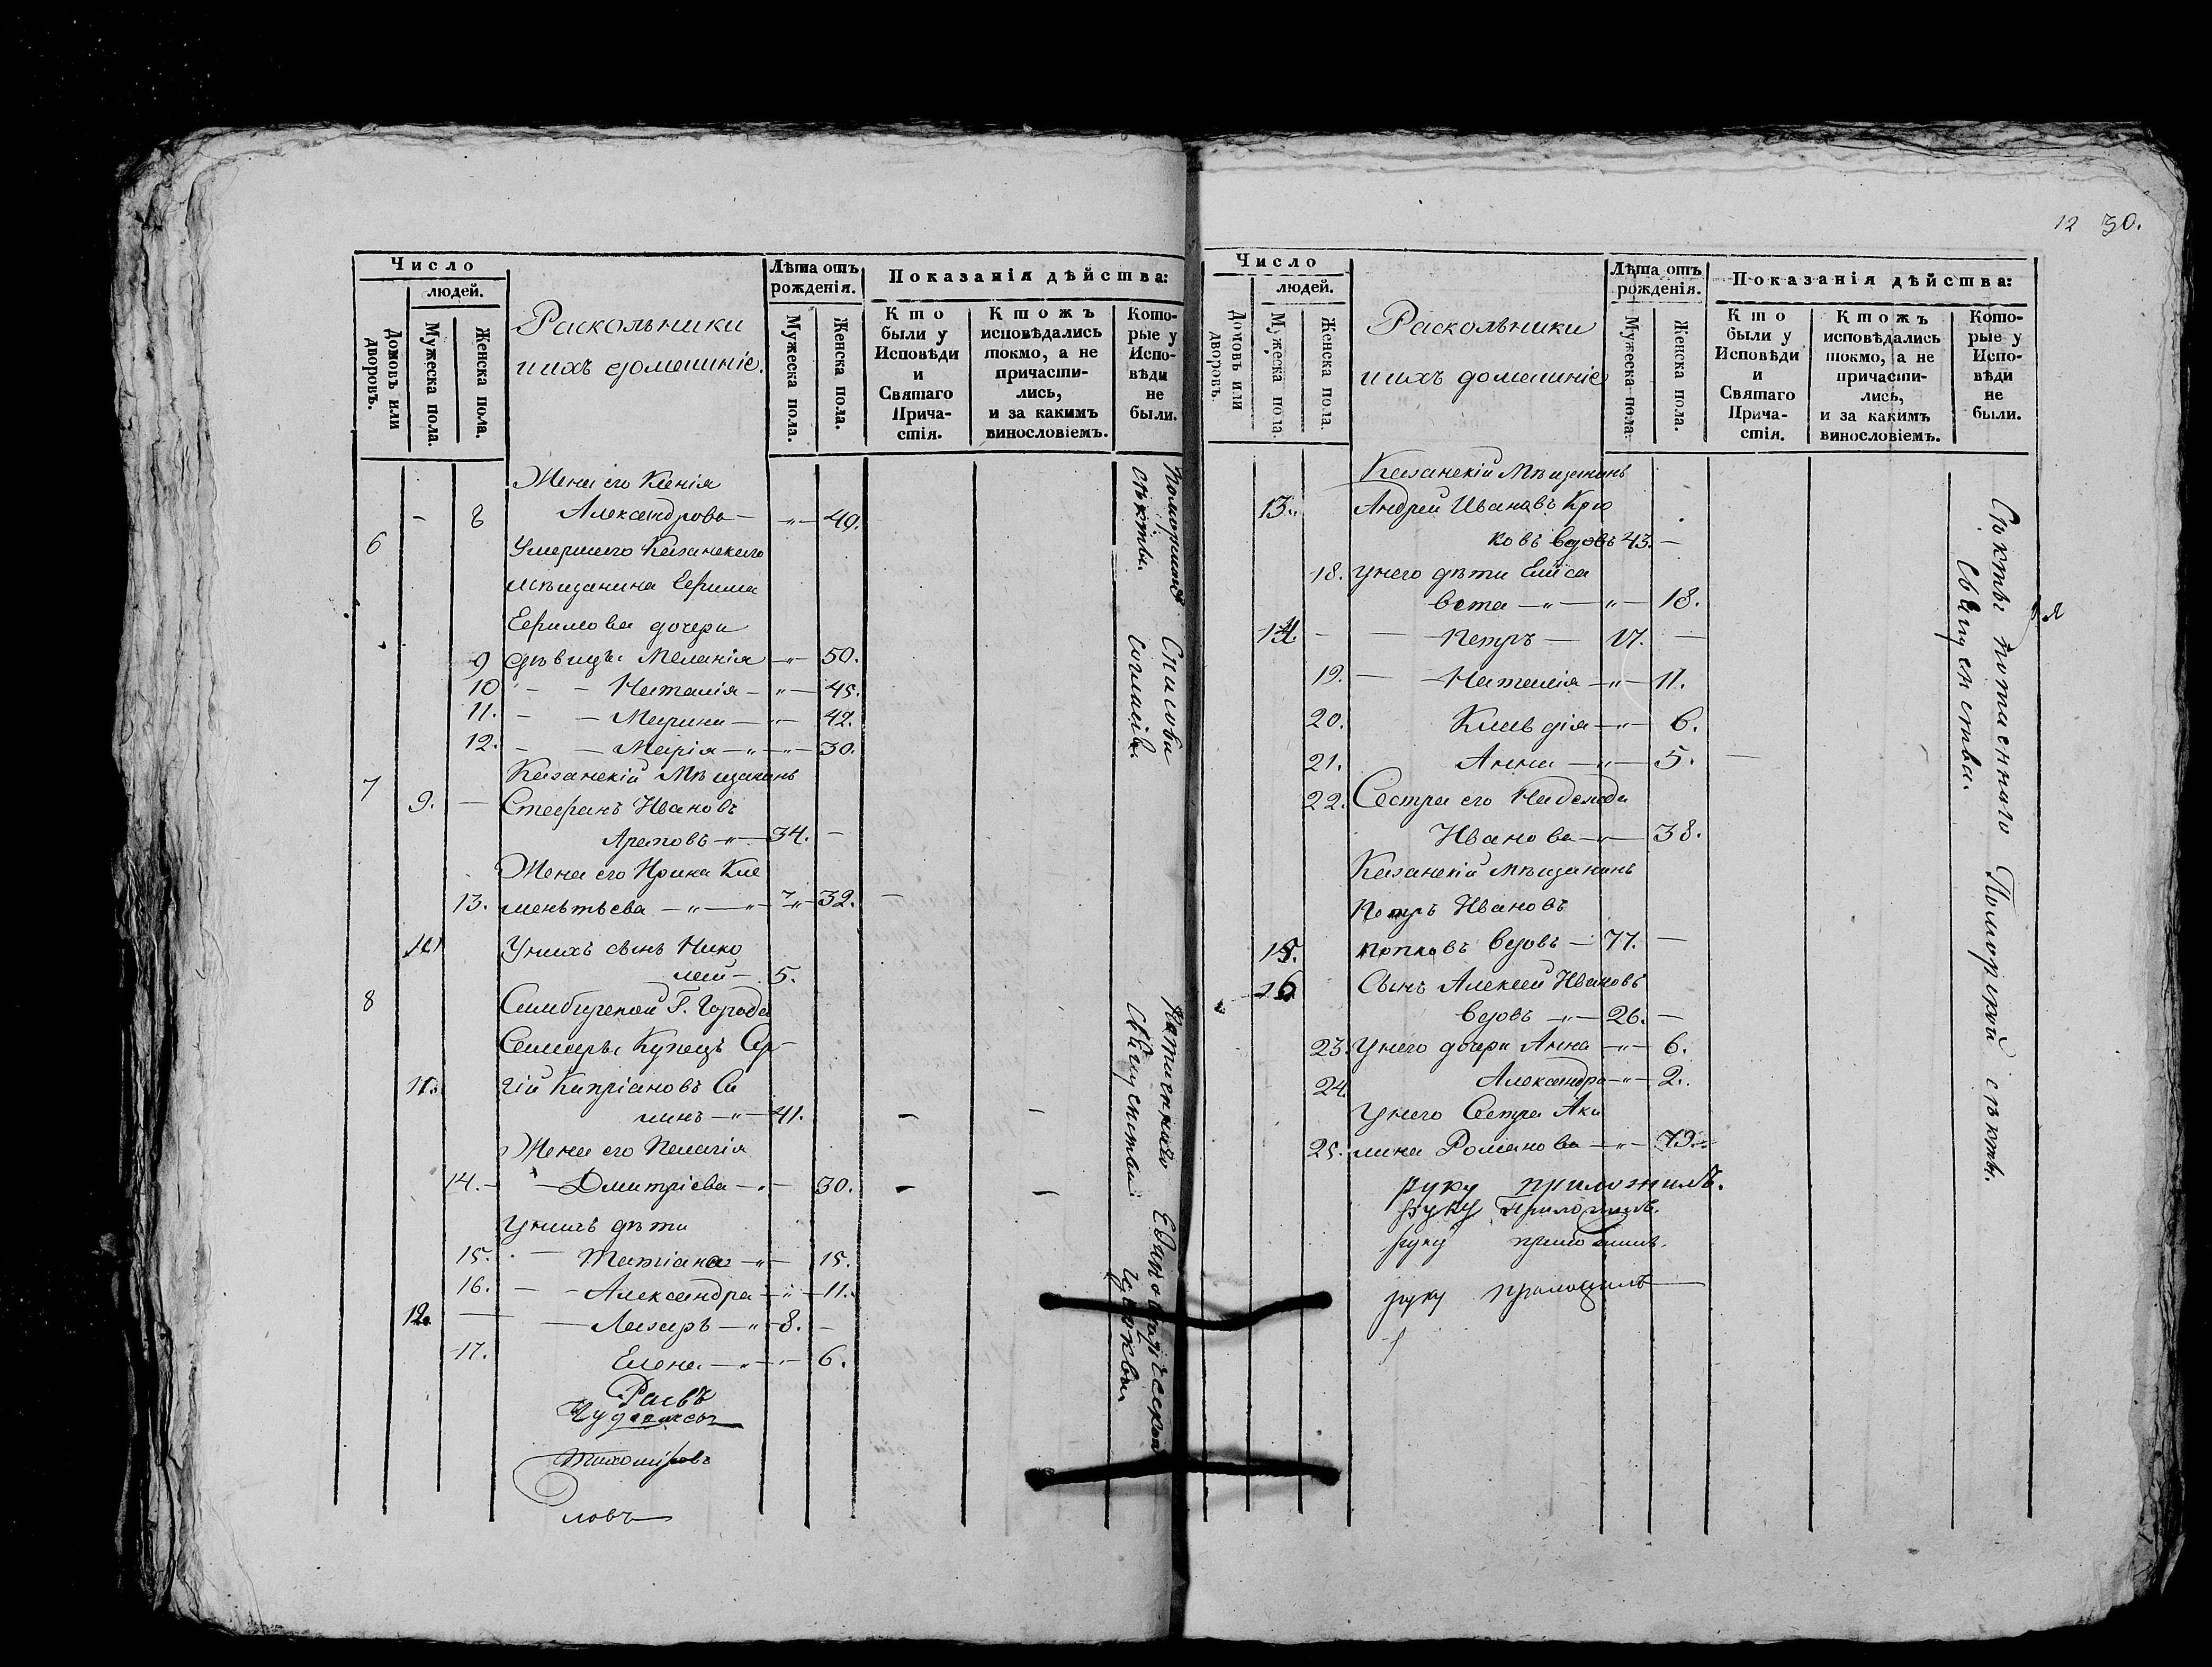 12 30.
Число
людей.
Домовъ или дворовъ.
Мужеска пола.
Женска пола.
Раскольники
и ихъ домашніе.
Лѣта отъ
рожденія.
Мужеска пола.
Женска пола.
Показанія дѣйства:
Кто
были у
Исповѣди
и
Святаго
Прича-
стія.
Ктожъ
исповѣдались
токмо, а не
причасти-
лись,
и за какимъ
винословіемъ.
Кото-
рые у
Испо-
вѣди
не
были.
Жена его Ксенія
- 8 Александрова — „ — 49.
6 Умершаго Казанскаго
мѣщанина Ефима
Ефимова дочери
9 дѣвицы Меланія — „ — 50.
10 - - Наталія - „ — 45.
11. - - Марина — „ — 42.
12. - — Марія — „ — „ — 30.
7 Казанскій Мѣщанинъ
9. — Стефанъ Ивановъ
Араповъ — „ — 34. —
Жена его Ирина Кле
13. ментьева — „ — „ — „ — 32. —
10 У нихъ сынъ Нико
лай — 5.
8 Симбирской Г. Города
Самары Купецъ Сер-
11. гій Кипріановъ Са
линъ — „ — 41.
Жена его Пелагія
14. - — Дмитріева — „ — 30.
У нихъ дѣти
15. - — Татіана — „ — 15.
16. - - Александра — „ — 11.
12. — — Лазарь — „ — 8. —
17. Елена — „ — „ — 6.
Поморской секты.
Спасова согласія.
Потаеннаго священства
Единовѣрческой церкви
Тихомировъ
ловъ
Число
людей.
Домовъ или дворовъ.
Мужеска пола.
Женска пола.
Раскольники
и ихъ домашніе
Лѣта отъ
рожденія.
Мужеска пола.
Женска пола.
Показанія дѣйства:
Кто
были у
Исповѣди
и
Святаго
Прича-
стія.
Ктожъ
исповѣдались
токмо, а не
причасти-
лись,
и за какимъ
винословіемъ.
Кото-
рые у
Испо-
вѣди
не
были.
Казанскій Мѣщанинъ
13. Андрей Ивановъ Крю
ковъ вдовъ 43. —
18. У него дѣти Елиса
вета — „ — „ — 18.
14. - — Петръ — 17. —
19. — — Наталія — „ — 11.
20. Клавдія — „ — 6.
21. Анна — „ — 5. —
22. Сестра его Надежда
Иванова — „ — 38.
Казанскій мѣщанинъ
Петръ Ивановъ
15. Попковъ вдовъ — 77. —
16 Сынъ Алексей Ивановъ
вдовъ — „ — 26. —
23. У него дочери Анна — „ — 6.
24. Александра — „ — 2.
У него Сестра Аки
25. лина Романова — „ — 79.
руку приложилъ.
руку приложилъ.
руку приложилъ.
руку приложилъ
Секты потаеннаго священства.
Поморской секты.